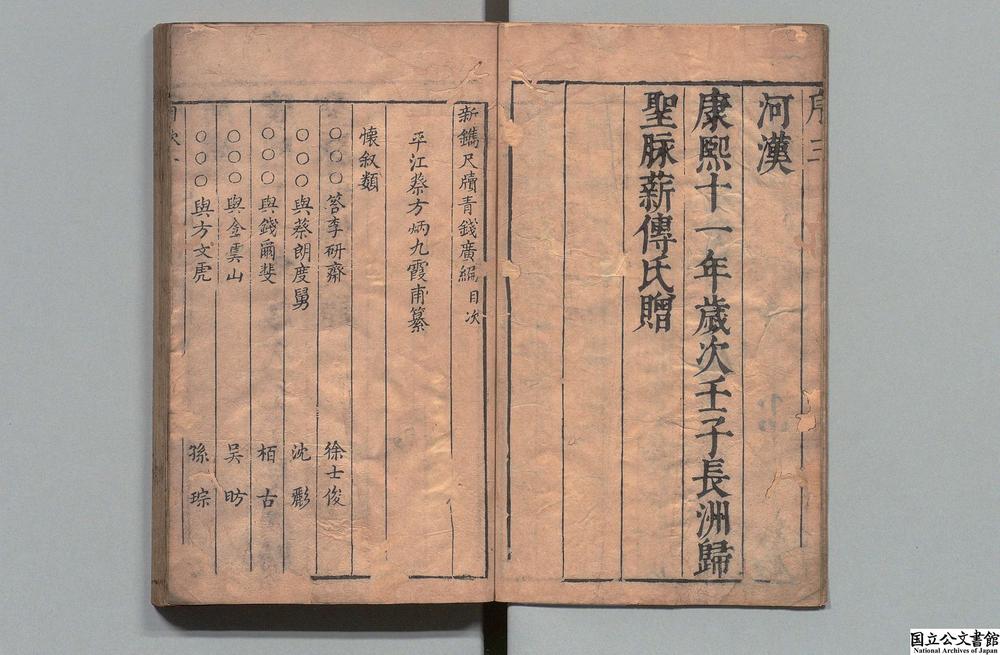 序 三
河漢
康熙十一年歲次壬子長洲歸
聖脉薪傳氏贈
新鐫尺牘青錢廣編目次
平江蔡方炳九霞甫纂
懷叙類
○○○答李研齋 徐士俊
○○○與蔡朗度舅 沈
○○○與錢爾斐 栢古
○○○與金雲山 吴昉
○○○與方文虎 孫琮
国立公文書館
National Archives of Japan